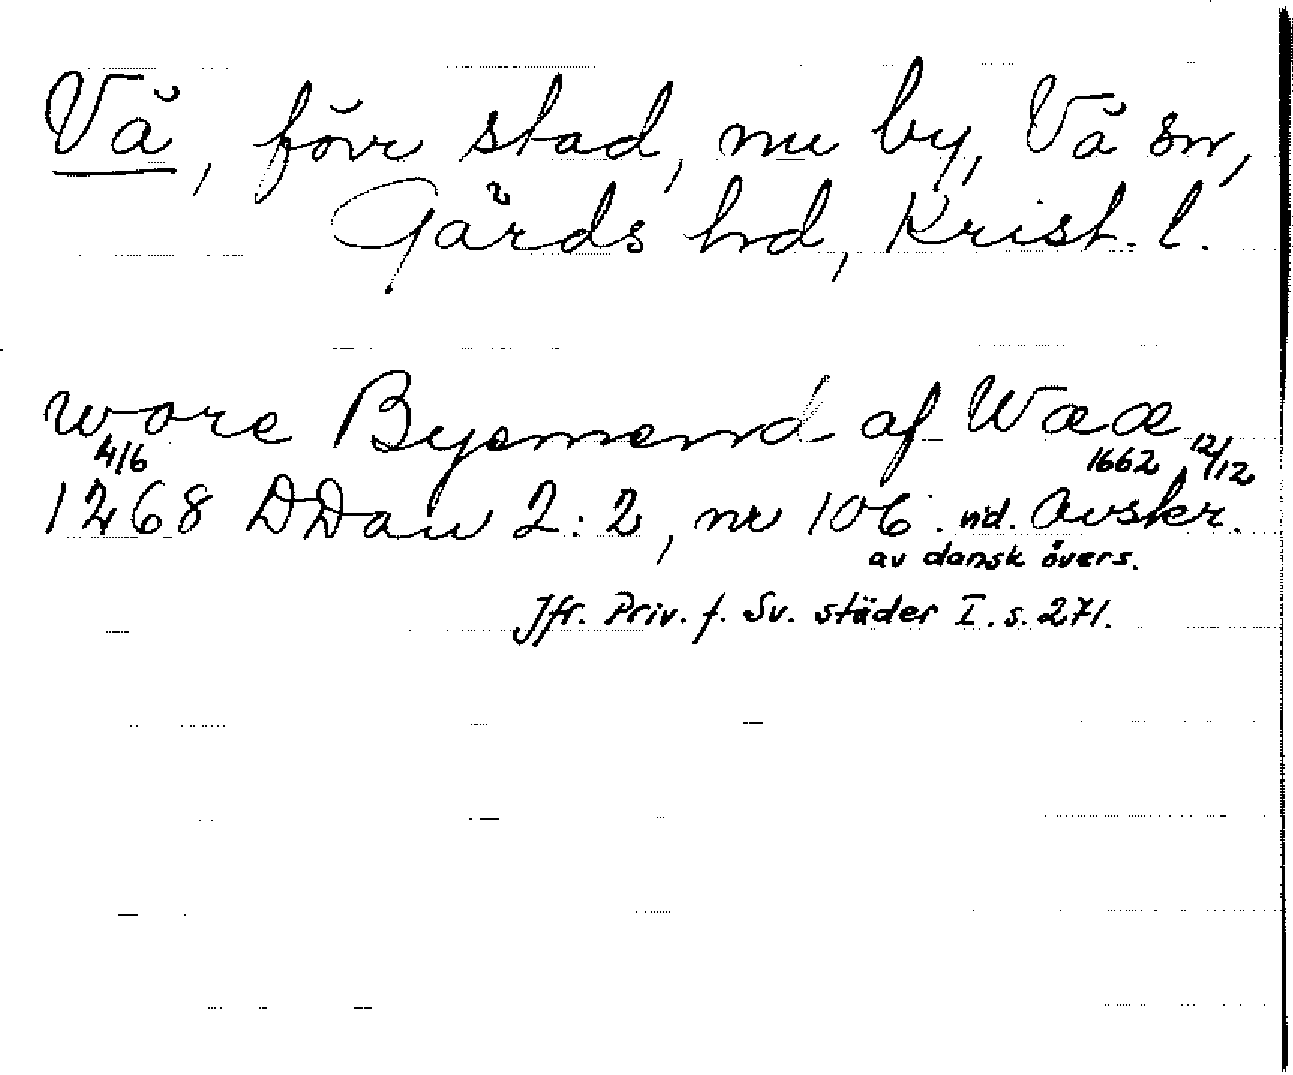 Vå, förr stad, nu by, Vå sn,
Gärds hd, Krist. l.
wore Byemend af Wææ
4/6 1662 12/12
1268 DDan 2:2, nr 106. nd. Avskr.
av dansk övers.
Jfr. Priv. f. Sv. städer I. s. 271.